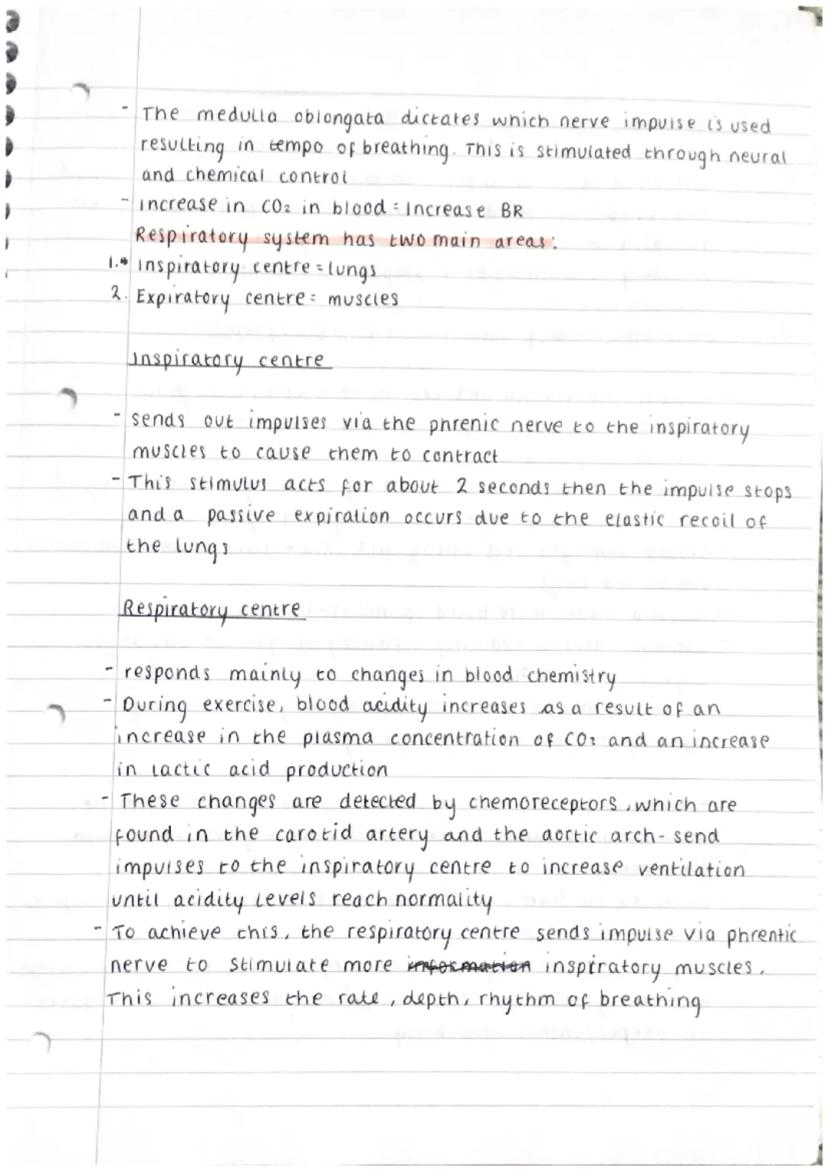 - The medulla oblongata dictates which nerve impulse is used
resulting in tempo of breathing. This is stimulated through neural
and chemical control
- increase in CO2 in blood = Increase BR
Respiratory system has two main areas:
1.• Inspiratory centre = lungs
2. Expiratory centre = muscles
Inspiratory centre
- sends out impulses via the phrenic nerve to the inspiratory
muscles to cause them to contract
- This stimulus acts for about 2 seconds then the impulse stops
and a passive expiration occurs due to the elastic recoil of
the lungs
Respiratory centre
- responds mainly to changes in blood chemistry
- During exercise, blood acidity increases as a result of an
increase in the plasma concentration of CO2 and an increase
in lactic acid production
- These changes are detected by chemoreceptors, which are
found in the carotid artery and the aortic arch - send
impulses to the inspiratory centre to increase ventilation
until acidity levels reach normality
- To achieve this, the respiratory centre sends impulse via phrentic
nerve to stimulate more information inspiratory muscles.
This increases the rate, depth, rhythm of breathing